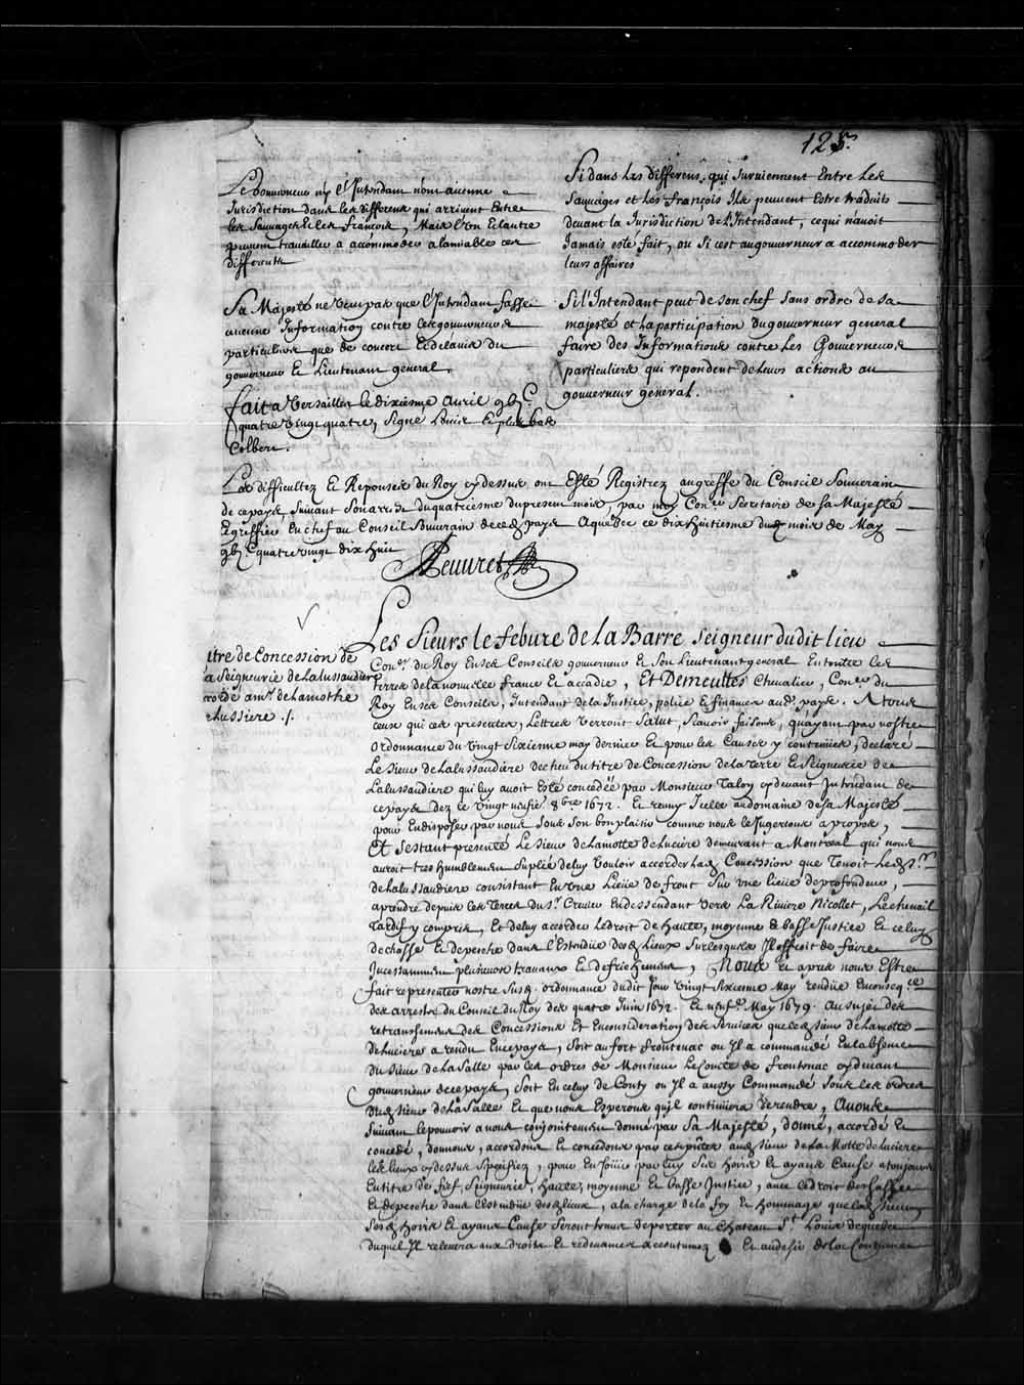 125.
Le Gouverneur ny l'Intendant n'ont aucune
Jurisdiction dans les differens qui arrivent Entre
les Sauvages Et les francois, Mais l'un Et l'autre
peuvent travailler a accommoder a lamiable ces
differents
Si dans les differens, qui surviennent Entre les
Sauvages et les françois Ils peuvent Estre traduits
devant la Jurisdiction de l'Intendant, ce qui n'auoit
Jamais esté fait, ou si cest au gouverneur a accommoder
leurs affaires
Sa Majesté ne veut pas que l'Intendant fasse
aucune Information contre les gouverneurs
particuliers que de concert Et de lavis du
gouverneur Et Lieutenant general.
fait a Versailles le dixiesme Avril gbjC
quatre vingt quatre, Signé Louis Et plus bas
Colbert.
Si l'Intendant peut de son chef sans ordre de sa
majesté et la participation du gouverneur general
faire des Informations contre les Gouverneurs
particuliers qui repondent de leurs actions au
gouverneur general.
Les difficultez Et Reponses du Roy cy dessus ont Esté Registrez au greffe du Conseil Souverain
de ce pays, Suivant Son arrest du quatriesme du present mois, par moy Coner Secretaire de sa Majesté
Et greffier En chef au Conseil Souverain de ced pays A quebec ce dix huitiesme dud mois de May
gbjC quatre vingt dix huit
Peuuret
itre de Concession de
a Seigneurie de Lalussaudiere
cordé a mr. de Lamothe
elussiere ./.
Les Sieurs le febure de la Barre Seigneur dudit lieu
Coner. du Roy En ses Conseils gouverneur Et Son Lieutenant general En toutes les
terres de la nouvelle france Et accadie, Et Demeulles Chevalier, Coner du
Roy En ses Conseils, Intendant de la Justice, police Et finances aud. pays. A tous
ceux qui ces presentes, Lettres verront Salut, Scavoir faisons, qu'ayant par nostre
ordonnance du vingt Sixiesme may dernier Et pour les Causes y contenües, declaré
Le Sieur de Lalussaudiere decheu du titre de Concession de la terre Et Seigneurie de
Lalussaudiere qui luy auoit Esté concedée par Monsieur Talon cy devant Intendant de
ce pays dez le vingt neufie. 8bre 1672. Et reuny Icelle au domaine de sa Majesté
pour En disposer par nous Sous Son bon plaisir comme nous le Jugerions a propos,
Et Sestant presenté Le Sieur de Lamotte de Luciere demeurant a Montreal qui nous
auroit tres humblement Suplié de luy Vouloir accorder lad Concession que Tenoit Led Sr.
de Lalussaudiere consistant En vne Lieüe de front Sur vne lieüe de profondeur,
a prendre depuis les Terres du Sr. Crevier En dessendant vers La Riviere Nicollet, Le chenail
Tardif y compris, Et de luy accorder Le droit de Haute, moyenne & basse Justice Et celuy
de chasse Et de pesche dans l'Estendüe desd Lieux Sur lesquels Il offroit de faire
Incessamment plusieurs travaux Et defrichemens, Nous Et apres nous Estre
fait representer nostre Susd. ordonnance dudit Jour vingt Sixiesme May rendüe En conseqce
des arrests du Conseil du Roy des quatre Juin 1672. Et neufe. May 1679. Au sujet des
retranchemens des Concessions Et En consideration des Services que led sieur de Lamotte
de Luciere a rendu En ce pays, Soit au fort frontenac ou Il a commandé En labsence
du Sieur de La Salle par les ordres de Monsieur Le Conte de frontenac cy devant
gouverneur de ce pays, Soit En celuy de Conty ou Il a aussy Commandé Sous les ordres
dud sieur de La Salle Et que nous Esperons qu'il continüera de rendre, Avons
Suivant le pouvoir a nous conjointement donné par Sa Majesté, donné, accordé Et
concedé, donnons, accordons Et concedons par ces pntes aud sieur de La Motte de Luciere
les lieux cy dessus Specifiez, pour En Jouir par luy Ses Hoirs Et ayans Cause a toujours
En titre de fief, Seigneurie, Haute, moyenne Et basse Justice, avec le droit de chasse
Et de pesche dans l'Estendüe desd lieux, a la charge de la foy Et Hommage que led Sieur
Sesd Hoirs Et ayans Cause Seront tenus de porter au Chateau St. Louis de quebec
duquel Il relevera aux droits Et redevances accoutumez Et au desir de la Coutume